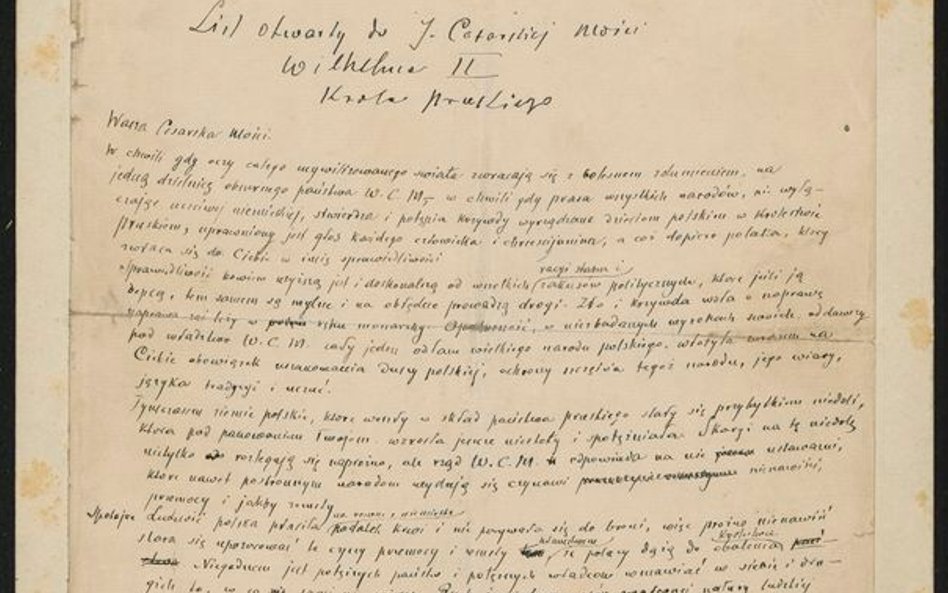 List otwarty do J. Cesarskiej Mości
Wilhelma II
Króla pruskiego
Wasza Cesarska Mości.
W chwili gdy oczy całego ucywilizowanego świata zwracają się z bolesnem zdumieniem, na
jedną dzielnicę obszernego państwa W. C. M., w chwili gdy prasa wszystkich narodów, nie wyłą-
czając uczciwej niemieckiej, stwierdza i potępia krzywdy wyrządzone dzieciom polskim w Królestwie
Pruskiem, uprawniony jest głos każdego człowieka i chrześcijanina, a coż dopiero polaka, który
zwraca się do Ciebie w imię sprawiedliwości
racyi stanu i
Sprawiedliwość bowiem wyższą jest i doskonalszą od wszelkich zakusów politycznych, które jeśli ją
depcą, tem samem są mylne i na obłędne prowadzą drogi. Zło i krzywda woła o naprawę
naprawa zaś leży w ręku monarszym. Opatrzność, w niezbadanych wyrokach swoich, oddawszy
pod władztwo W. C. M. cały jeden odłam wielkiego narodu polskiego, włożyła zarazem na
Ciebie obowiązek uszanowania duszy polskiej, ochrony szczęścia tegoż narodu, jego wiary,
języka tradycyi i uczuć.
Tymczasem ziemie polskie, które weszły w skład państwa pruskiego stały się przybytkiem niedoli,
która pod panowaniem Twojem wzrosła jeszcze niestety i spotężniała. Skargi na tę niedolę
nietylko rozlegają się napróżno, ale rząd W. C. M. odpowiada na nie ustawami,
które nawet postronnym narodom wydają się czynami nienawiści,
przemocy i jakby zemsty
Spokojna Ludność polska płaciła podatek krwi i nie porywała się do broni, więc próżno nienawiść
kłamstwem
stara się upozorować te czyny przemocy i zemsty iż polacy dążą do obalenia
Niegodnem jest potężnych państw i potężnych władców wmawiać w siebie i dru-
gich to, w co się samemu natury ludzkiej